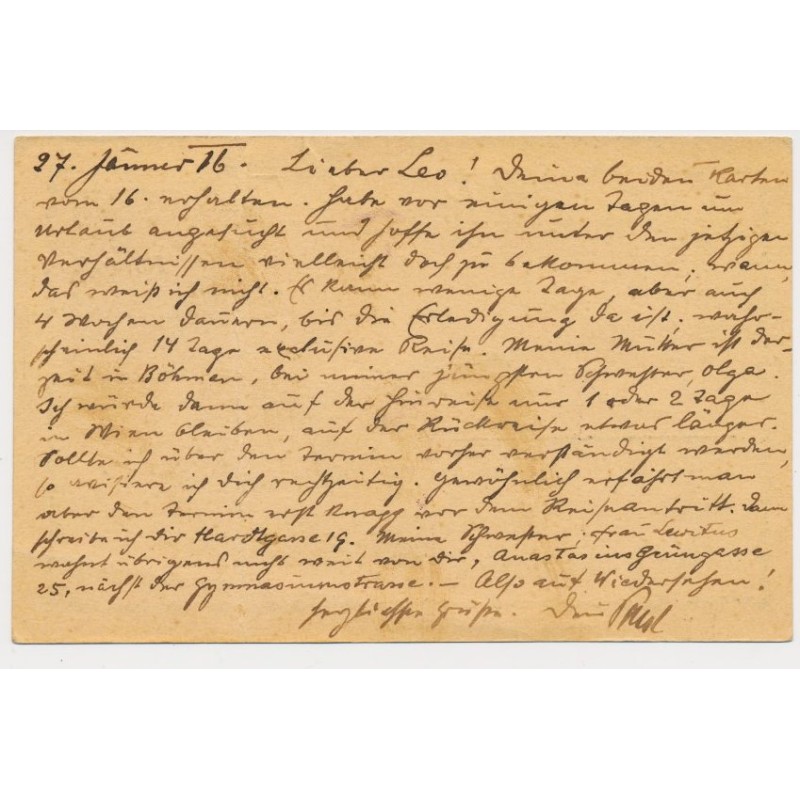 27. Jänner 16. Lieber Leo! Deine beiden Karten
vom 16. erhalten. Habe vor einigen Tagen um
Urlaub angesucht und hoffe ihn unter den jetzigen
Verhältnissen vielleicht doch zu bekommen; wann,
das weiß ich nicht. Es kann wenige Tage, aber auch
4 Wochen dauern, bis die Erledigung da ist; wahr-
scheinlich 14 Tage exclusive Reise. Meine Mutter ist der-
zeit in Böhmen, bei meiner jüngsten Schwester, Olga.
Ich würde dann auf der Hinreise nur 1 oder 2 Tage
in Wien bleiben, auf der Rückreise etwas länger.
Sollte ich über den Termin vorher verständigt werden,
so avisiere ich Dich rechtzeitig. Gewöhnlich erfährt man
aber den Termin erst knapp vor dem Reiseantritt. Dann
schreibe ich dir Hardtgasse 19. Meine Schwester, Frau Lewitus
wohnt übrigens nicht weit von dir, Anastasius Grüngasse
25, nächst der Gymnasiumstrasse. – Also auf Wiedersehen!
herzlichste Grüße. Dein Paul